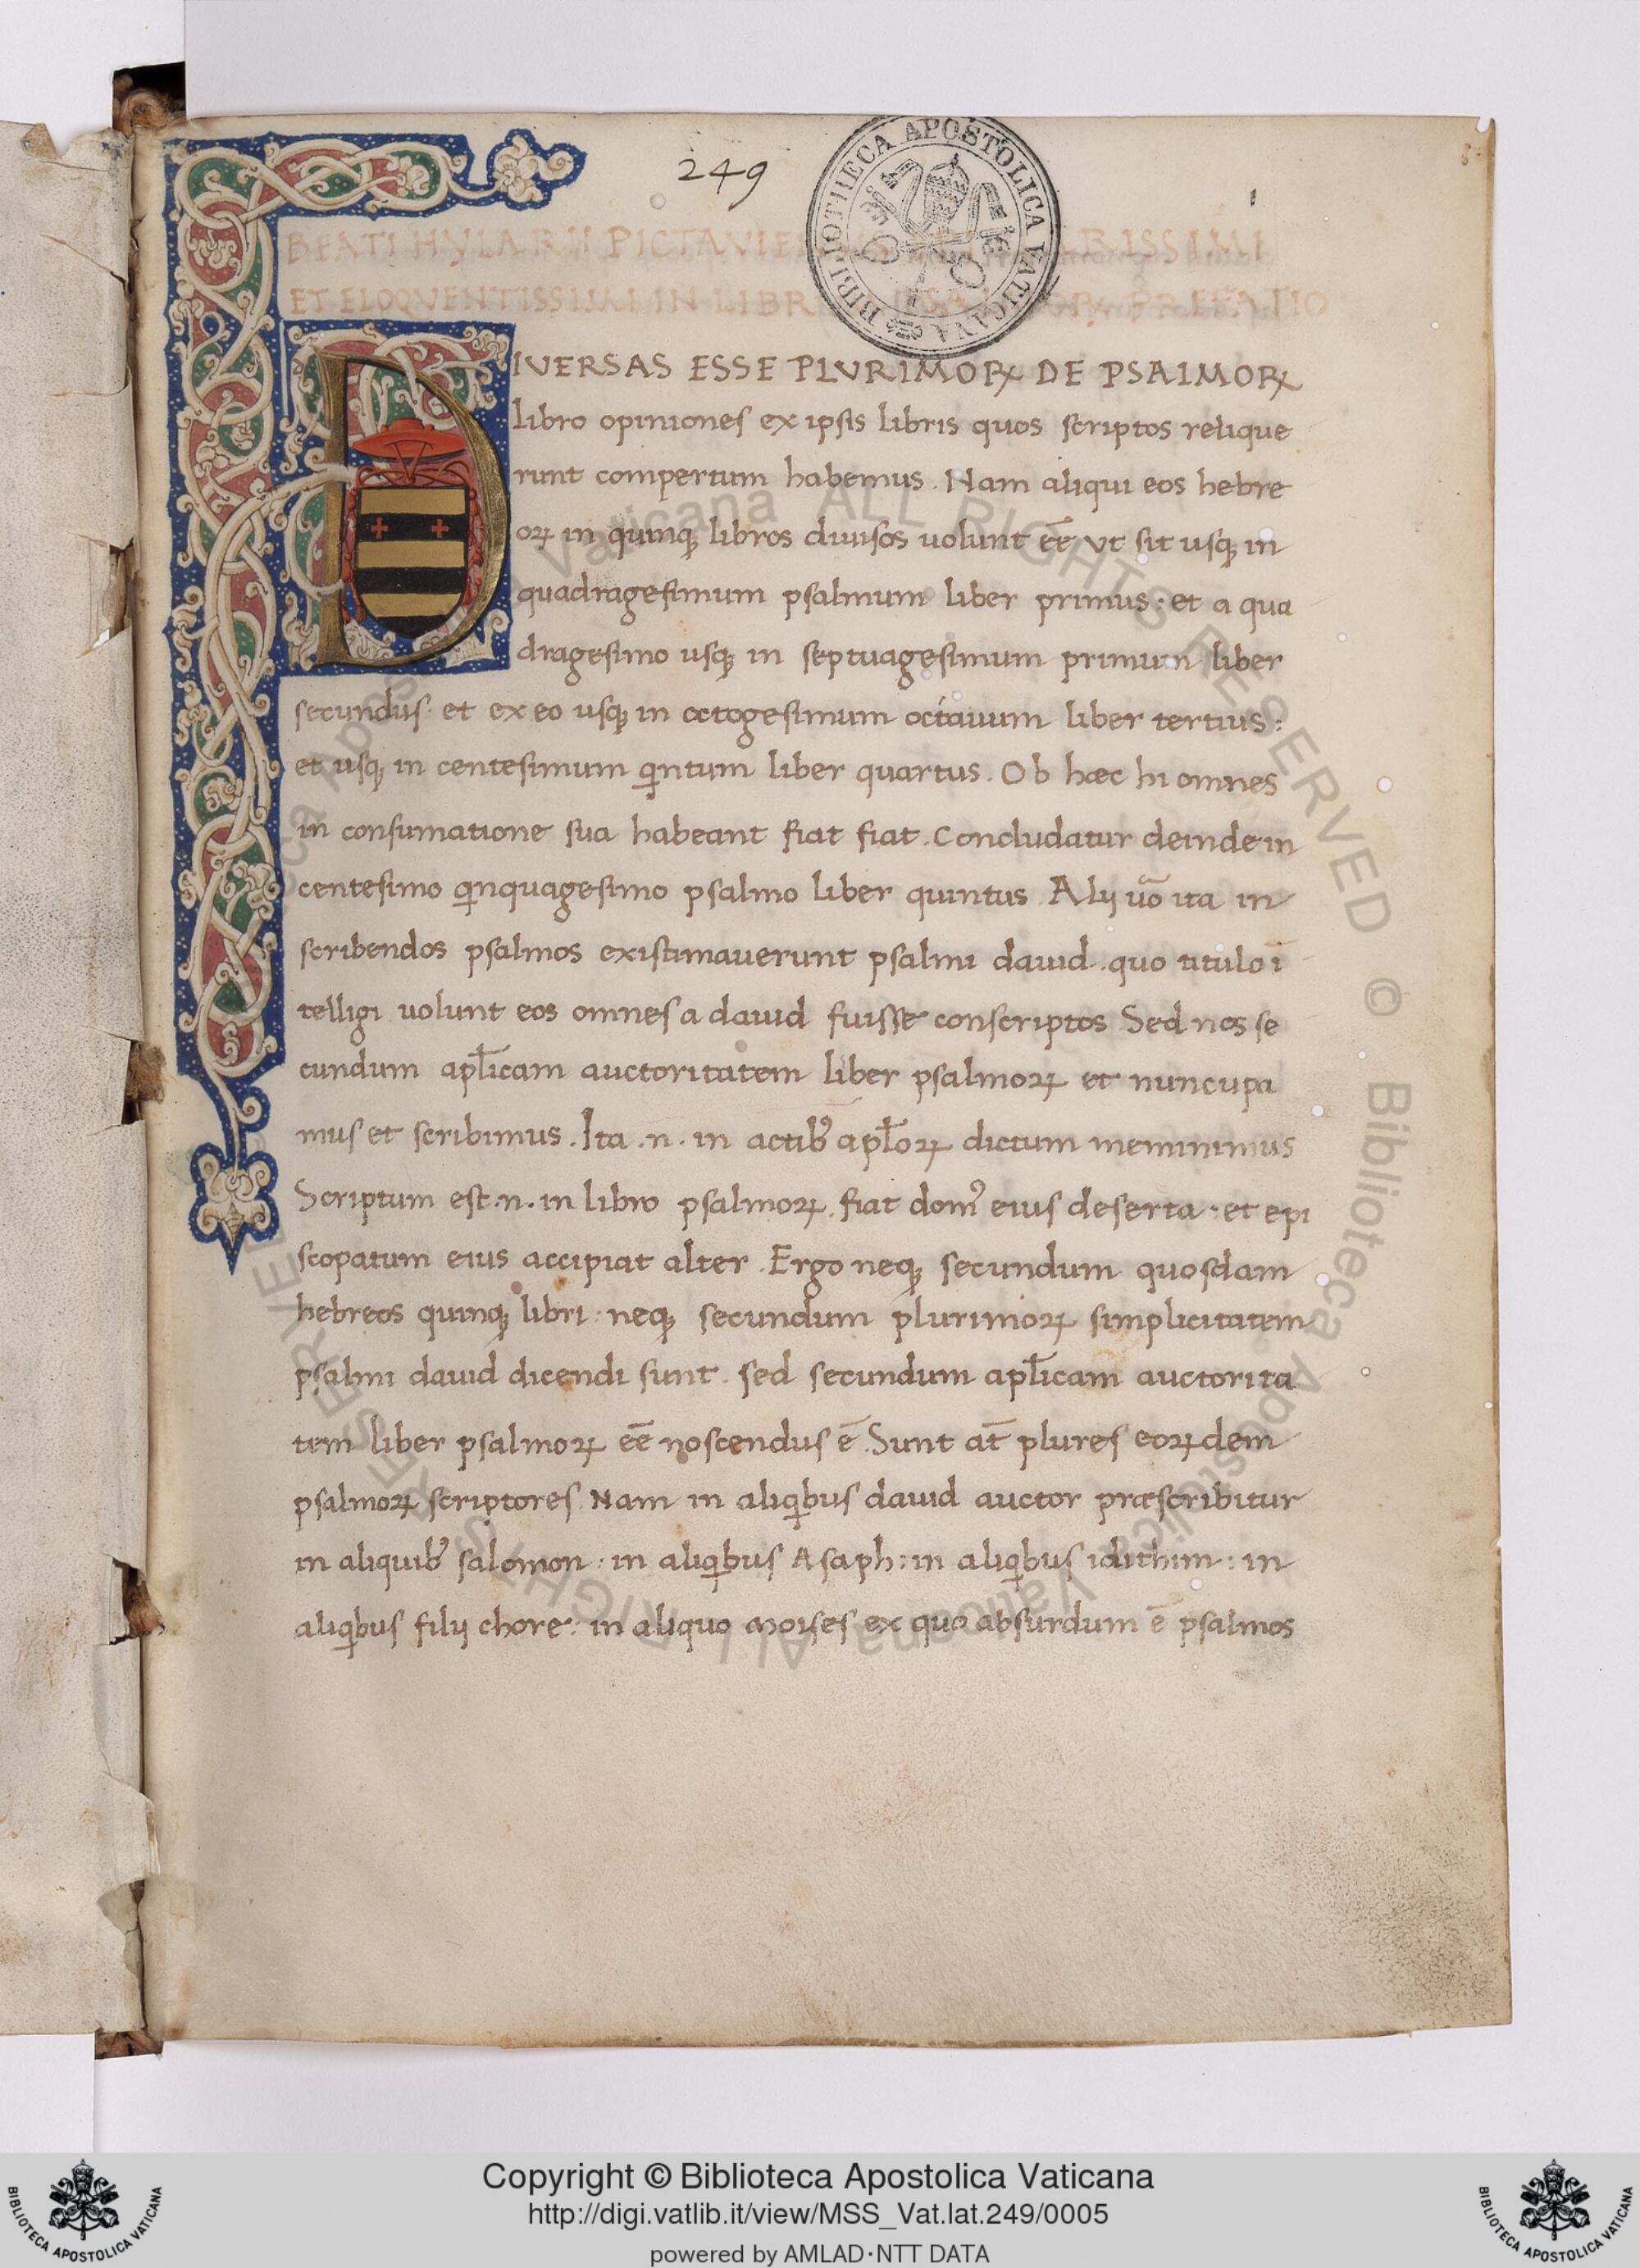 249
1
BIBLIOTHECA APOSTOLICA VATICANA
BEATI HYLARII PICTAVIE
ET ELOQVENTISSIMI IN LIBR PREFATIO
DIVERSAS ESSE PLVRIMOꝜ DE PSALMOꝜ
libro opiniones ex ipsis libris quos scriptos relique
runt compertum habemus. Nam aliqui eos hebre
oꝝ in quinqꝫ libros diuisos uolunt eẽ vt sit usqꝫ in
quadragesimum psalmum liber primus: et a qua
dragesimo usqꝫ in septuagesimum primum liber
secundus: et ex eo usqꝫ in octogesimum octauum liber tertius:
et usqꝫ in centesimum qͥntum liber quartus. Ob hæc hi omnes
in consumatione sua habeant fiat fiat. Concludatur deinde in
centesimo qͥnquagesimo psalmo liber quintus. Alij uo̅ ita in
scribendos psalmos existimauerunt psalmi dauid. quo titulo ī
telligi uolunt eos omnes a dauid fuisse conscriptos. Sed nos se
cundum apl̅icam auctoritatem liber psalmoꝝ et nuncupa
mus et scribimus. Ita .n. in actibꝰ apl̅oꝝ dictum meminimus
Scriptum est .n. in libro psalmoꝝ. fiat domꝰ eius deserta: et epi
scopatum eius accipiat alter. Ergo neqꝫ secundum quosdam
hebreos quinqꝫ libri: neqꝫ secundum plurimoꝝ simplicitatem
psalmi dauid dicendi sunt. sed secundum apl̅icam auctorita
tem liber psalmoꝝ ee̅ noscendus ē. Sunt at̅ plures eoꝝdem
psalmoꝝ scriptores. Nam in aliqͥbus dauid auctor præscribitur
in aliquibꝰ salomon: in aliqͥbus Asaph: in aliqͥbus idithim: in
aliqͥbus filij chore: in aliquo Moises ex quo absurdum ē psalmos
Copyright © Biblioteca Apostolica Vaticana
http://digi.vatlib.it/view/MSS_Vat.lat.249/0005
powered by AMLAD·NTT DATA
BIBLIOTECA APOSTOLICA VATICANA
BIBLIOTECA APOSTOLICA VATICANA